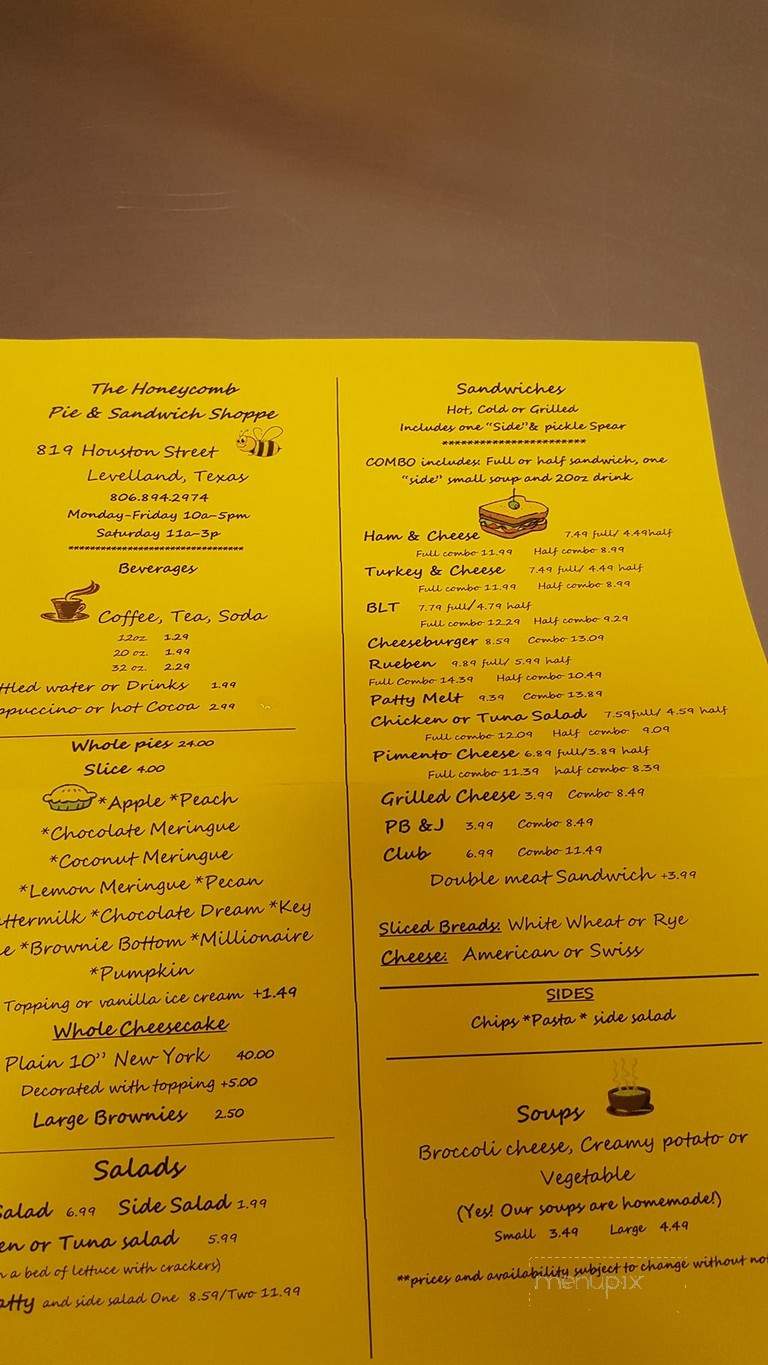 The Honeycomb
Pie & Sandwich Shoppe
819 Houston Street
Levelland, Texas
806.894.2974
Monday-Friday 10a-5pm
Saturday 11a-3p
*******************************
Beverages
Coffee, Tea, Soda
12oz. 1.29
20 oz. 1.99
32 oz. 2.29
ttled water or Drinks 1.99
ppuccino or hot Cocoa 2.99
Whole pies 24.00
Slice 4.00
*Apple *Peach
*Chocolate Meringue
*Coconut Meringue
*Lemon Meringue *Pecan
ttermilk *Chocolate Dream *Key
e *Brownie Bottom *Millionaire
*Pumpkin
Topping or vanilla ice cream +1.49
Whole Cheesecake
Plain 10” New York 40.00
Decorated with topping +5.00
Large Brownies 2.50
Salads
Salad 6.99 Side Salad 1.99
en or Tuna salad 5.99
n a bed of lettuce with crackers)
atty and side salad One 8.59/Two 11.99
Sandwiches
Hot, Cold or Grilled
Includes one “Side”& pickle Spear
***********************
COMBO includes: Full or half sandwich, one
“side” small soup and 20oz drink
Ham & Cheese 7.49 full/ 4.49half
Full combo 11.99 Half combo 8.99
Turkey & Cheese 7.49 full/ 4.49 half
Full combo 11.99 Half combo 8.99
BLT 7.79 full/4.79 half
Full combo 12.29 Half combo 9.29
Cheeseburger 8.59 Combo 13.09
Rueben 9.89 full/ 5.99 half
Full Combo 14.39 Half combo 10.49
Patty Melt 9.39 Combo 13.89
Chicken or Tuna Salad 7.59full/ 4.59 half
Full combo 12.09 Half combo 9.09
Pimento Cheese 6.89 full/3.89 half
Full combo 11.39 half combo 8.39
Grilled Cheese 3.99 Combo 8.49
PB &J 3.99 Combo 8.49
Club 6.99 Combo 11.49
Double meat Sandwich +3.99
Sliced Breads: White Wheat or Rye
Cheese: American or Swiss
SIDES
Chips *Pasta * side salad
Soups
Broccoli cheese, Creamy potato or
Vegetable
(Yes! Our soups are homemade!)
Small 3.49 Large 4.49
**prices and availability subject to change without no
menupix